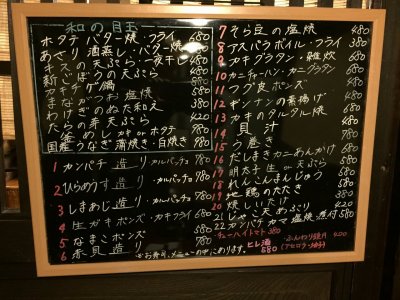 和の目玉
ホタテバター焼・フライ 680
あさり酒蒸し・バター焼 680
キスの天ぷら・一夜干し 580
新ごぼうの天ぷら 480
カキチゲ鍋 780
まながつお塩焼 780
わけぎのぬた和え 380
たらの芽天ぷら 580
釜めし カキ or ホタテ 780
国産うなぎ蒲焼き・白焼き 980
1 カンパチ造り・カルパッチョ 780
2 ひらめうす造り・カルパッチョ 780
3 しまあじ造り・カルパッチョ 780
4 生ガキポンズ・カキフライ 680
5 なまこポンズ
6 赤貝造り 980
7 そら豆の塩焼 480
8 アスパラボイル・フライ 380
9 カキグラタン・雑炊 680
10 カニチャーハン・カニグラタン 680
11 フグ皮ポンズ
12 ギンナンの素揚げ
13 カキのタルタル焼
14 貝汁
15 う巻き
16 だしまきカニあんかけ 680
17 明太子 or 天ぷら
18 れんこんまんじゅう
19 地鶏のたたき
20 焼しいたけ
21 じゃこ天あぶり 420
22 カンパチカマ塩焼・煮付 580
チューハイトマト 380
※お寿司、メニューの中にあります。
ヒレ酒 580